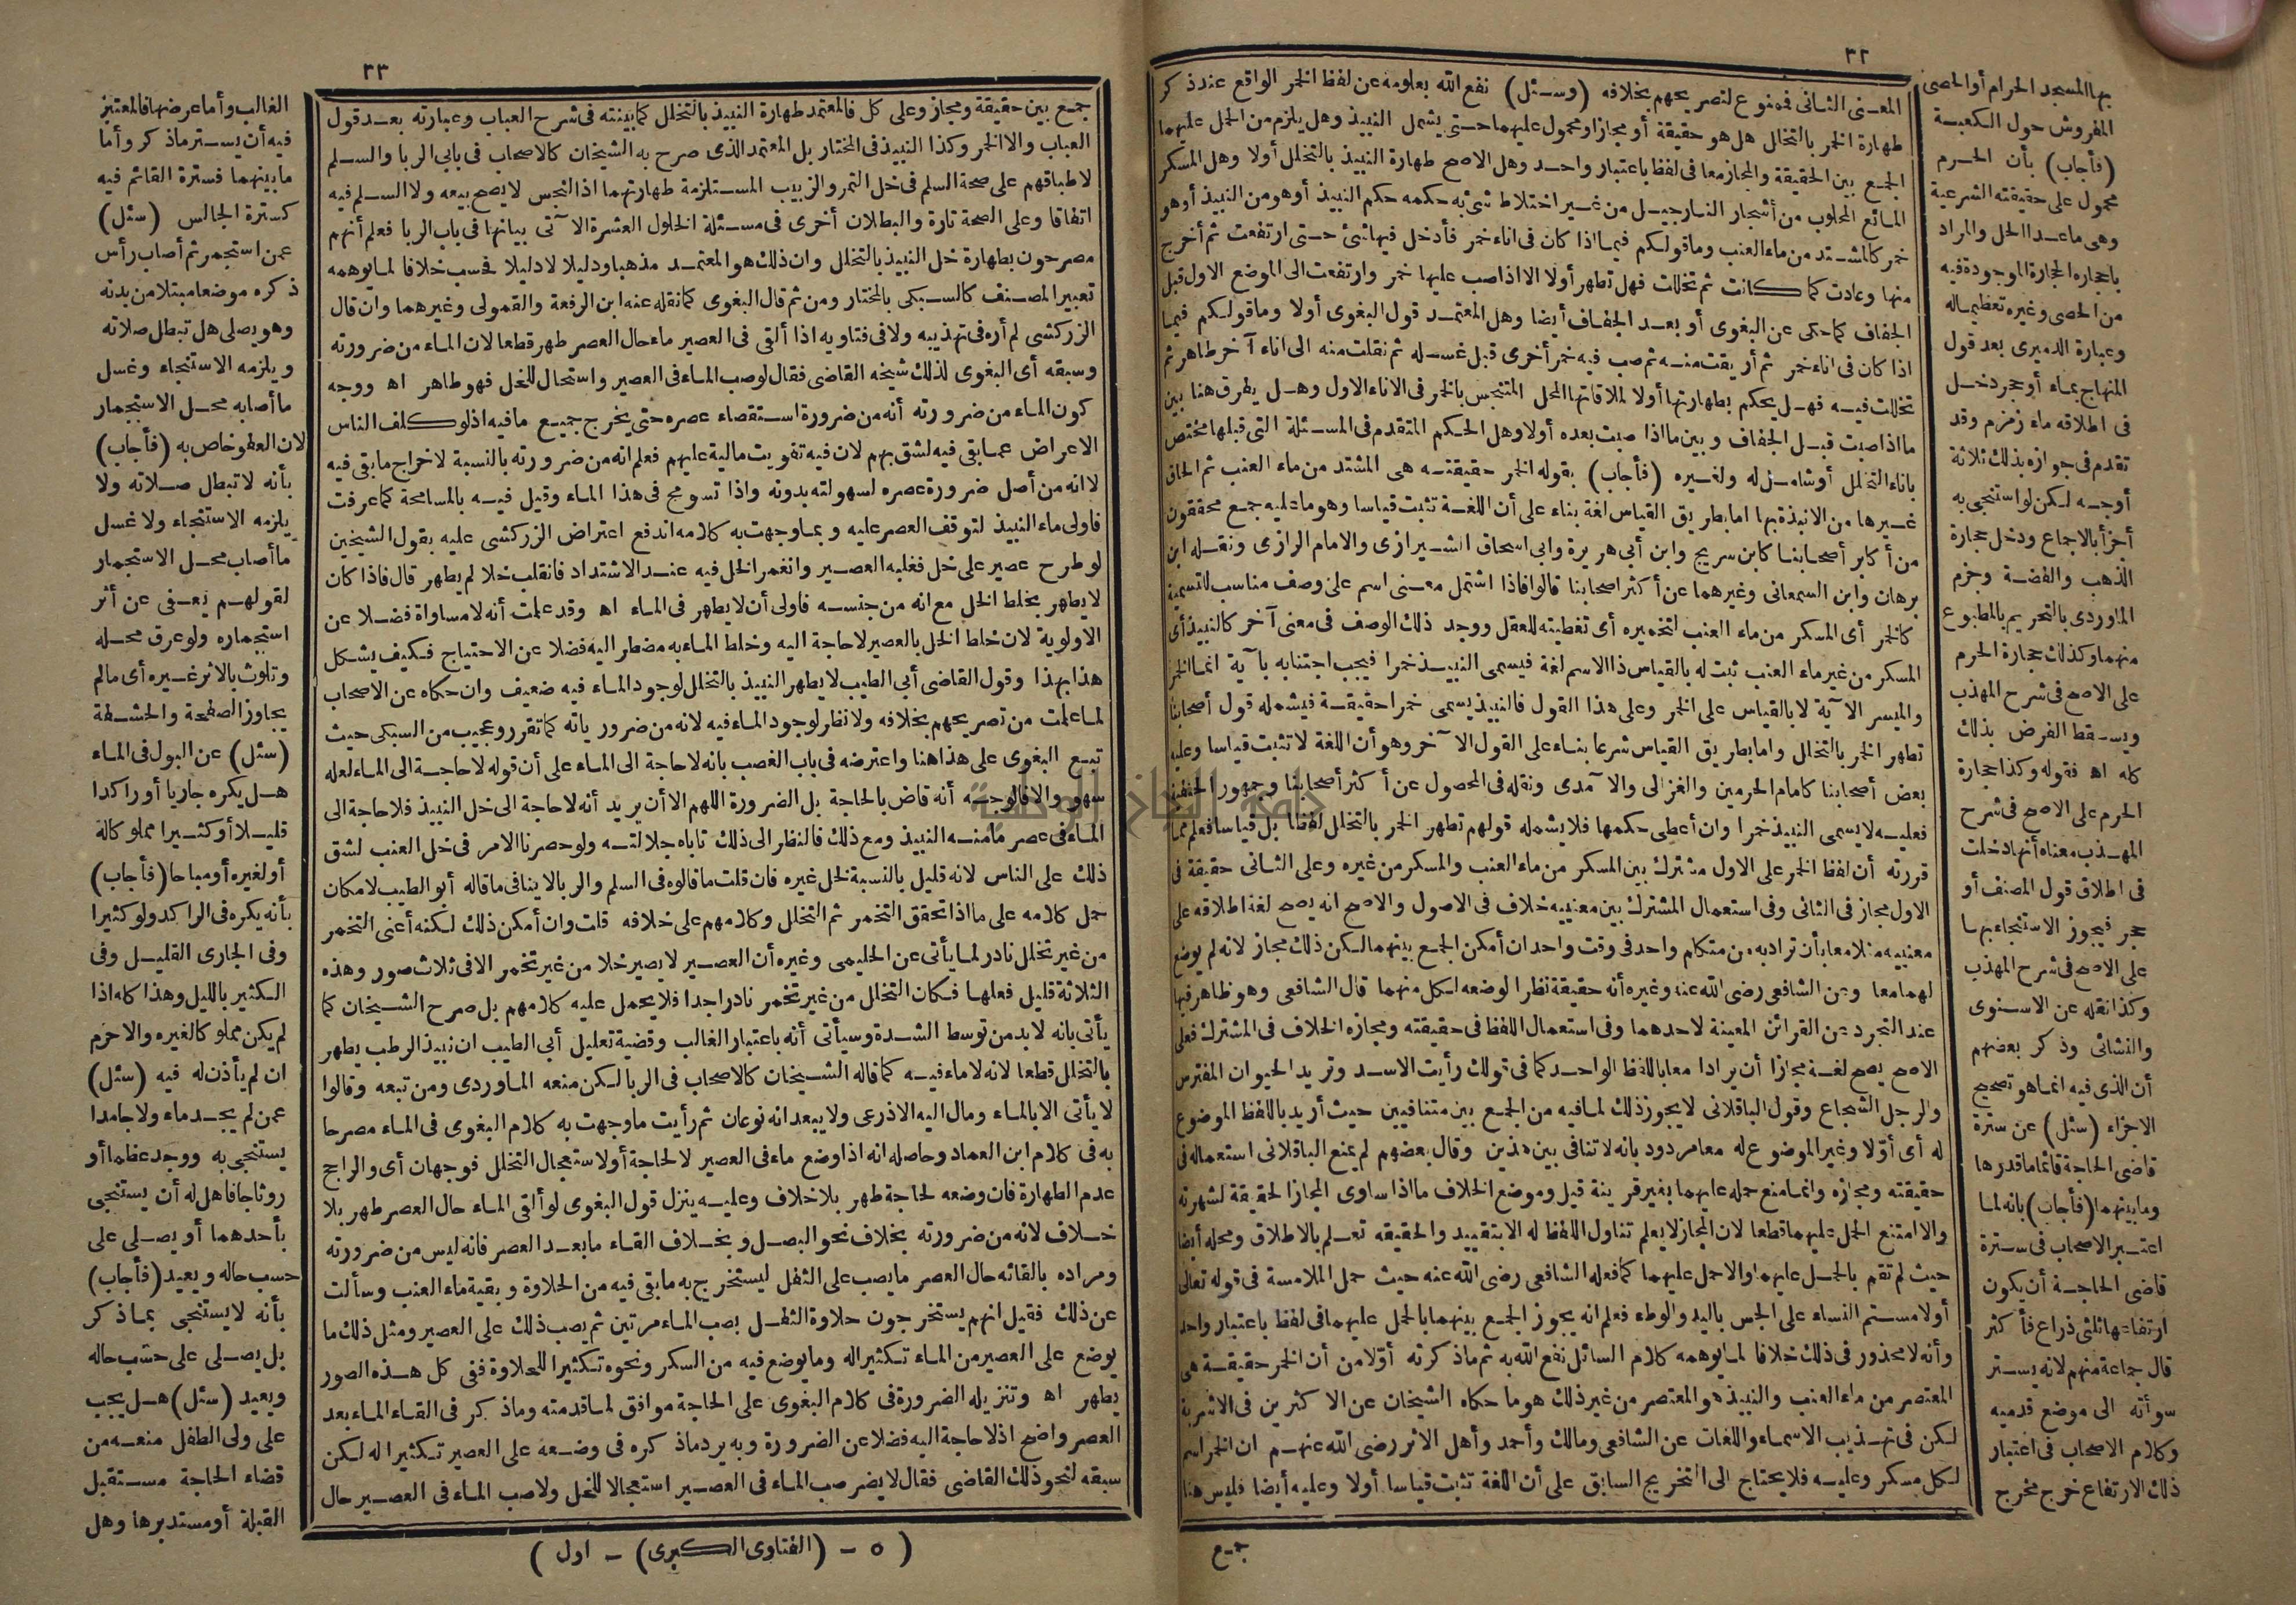 ٣٢
المعنى الثانى فمنوع لتصريحهم بخلافه (وسئل) نفع الله بعلومه عن لفظ الخمر الواقع عند ذكر
طهارة الخمر بالتخلل هل هو حقيقة أو مجازا ومحمول عليهما حتى يشمل النبيذ وهل يلزم من الحمل عليهما
الجمع بين الحقيقة والمجاز معا فى لفظ باعتبار واحد وهل الاصح طهارة النبيذ بالتخلل أولا وهل المسكر
المائع المجلوب من أشجار النارجيل من غير اختلاط شئ به حكمه حكم النبيذ أو هو من النبيذ أو هو
خمر كالمشتد من ماء العنب وما قولكم فيما اذا كان فى اناء خمر فأدخل فيها شئ حتى ارتفعت ثم أخرج
منها وعادت كما كانت ثم تخللت فهل تطهر أولا الا اذا صب عليها خمر وارتفعت الى الموضع الاول قبل
الجفاف كما حكى عن البغوى أو بعد الجفاف أيضا وهل المعتمد قول البغوى أولا وما قولكم فيما
اذا كان فى اناء خمر ثم أريقت منه ثم صب فيه خمر أخرى قبل غسله ثم نقلت منه الى اناء آخر طاهر ثم
تخللت فيه فهل يحكم بطهارتها أولا لملاقاتها المحل المتنجس بالخمر فى الاناء الاول وهل يفرق هنا بين
ما اذا صبت قبل الجفاف وبين ما اذا صبت بعده أولا وهل الحكم المتقدم فى المسئلة التى قبلها مختص
باناء التخلل أو شامل له ولغيره (فأجاب) بقوله الخمر حقيقته هى المشتد من ماء العنب ثم الحاق
غيرها من الانبذة بها اما بطريق القياس لغة بناء على أن اللغة تثبت قياسا وهو ما عليه جمع محققون
من أكابر أصحابنا كابن سريج وابن أبى هريرة وابى اسحاق الشيرازى والامام الرازى ونقله ابن
برهان وابن السمعانى وغيرهما عن أكثر اصحابنا قالوا فاذا اشتمل معنى اسم على وصف مناسب للتسمية
كالخمر أى المسكر من ماء العنب لتخميره أى تغطيته للعقل ووجد ذلك الوصف فى معنى آخر كالنبيذ أى
المسكر من غير ماء العنب ثبت له بالقياس ذا الاسم لغة فيسمى النبيذ خمرا فيجب اجتنابه بآية انما الخمر
والميسر الآية لا بالقياس على الخمر وعلى هذا القول فالنبيذ يسمى خمرا حقيقة فيشمله قول أصحابنا
تطهر الخمر بالتخلل واما بطريق القياس شرعا بناء على القول الآخر وهو أن اللغة لا تثبت قياسا وعليه
بعض أصحابنا كامام الحرمين والغزالى والآمدى ونقله فى المحصول عن أكثر أصحابنا وجمهور الحنفية
فعليه لا يسمى النبيذ خمرا وان أعطى حكمها فلا يشمله قولهم تطهر الخمر بالتخلل لفظا بل قياسا فعلم مما
قررته أن لفظ الخمر على الاول مشترك بين المسكر من ماء العنب والمسكر من غيره وعلى الثانى حقيقة فى
الاول مجاز فى الثانى وفى استعمال المشترك بين معنييه خلاف فى الاصول والاصح انه يصح لغة اطلاقه على
معنييه مثلا معا بأن تراد به من متكلم واحد فى وقت واحد ان أمكن الجمع بينهما لكن ذلك مجاز لانه لم يوضع
لهما معا وعن الشافعى رضى الله عنه وغيره أنه حقيقة نظرا لوضعه لكل منهما قال الشافعى وهو ظاهر فيها
عند التجرد عن القرائن المعينة لاحدهما وفى استعمال اللفظ فى حقيقته ومجازه الخلاف فى المشترك فعلى
الاصح يصح لغة مجازا أن يرادا معا باللفظ الواحد كما فى قولك رأيت الاسد وتريد الحيوان المفترس
والرجل الشجاع وقول الباقلانى لا يجوز ذلك لما فيه من الجمع بين متنافيين حيث أريد باللفظ الموضوع
له أى أولا وغير الموضوع له معا مردود بانه لا تنافى بين هذين وقال بعضهم لم يمنع الباقلانى استعماله فى
حقيقته ومجازه وانما منع حمله عليهما بغير قرينة قيل وموضع الخلاف ما اذا ساوى المجاز الحقيقة لشهرته
والا امتنع الحمل عليهما قطعا لان المجاز لا يعلم تناول اللفظ له الا بتقييد والحقيقه تعلم بالاطلاق ومحله أيضا
حيث لم تقم بالحمل عليهما والا حمل عليهما كما فعله الشافعى رضى الله عنه حيث حمل الملامسة فى قوله تعالى
أو لامستم النساء على الجس باليد والوطء فعلم انه يجوز الجمع بينهما بالحمل عليهما فى لفظ باعتبار واحد
وأنه لا محذور فى ذلك خلافا لما يوهمه كلام السائل نفع الله به ثم ما ذكرته أولا من أن الخمر حقيقة هى
المعتصر من ماء العنب والنبيذ هو المعتصر من غير ذلك هو ما حكاه الشيخان عن الاكثرين فى الاشربة
لكن فى تهذيب الاسماء واللغات عن الشافعى ومالك وأحمد وأهل الاثر رضى الله عنهم ان الخمر اسم
لكل مسكر وعليه فلا يحتاج الى التخريج السابق على أن اللغة تثبت قياسا أولا وعليه أيضا فليس هنا
جمع
بها المسجد الحرام أو الحصى
المفروش حول الكعبة
(فأجاب) بأن الحرم
محمول على حقيقته الشرعية
وهى ما عدا الحل والمراد
باحجاره الحجارة الموجودة فيه
من الحصى وغيره تعظيما له
وعبارة الدميرى بعد قول
المنهاج بماء أو حجر دخل
فى اطلاقه ماء زمزم وقد
تقدم فى جوازه بذلك ثلاثة
أوجه لكن لو استنجى به
أجزأ بالاجماع ودخل حجارة
الذهب والفضة وجزم
الماوردى بالتحريم بالمطبوع
منهما وكذلك حجارة الحرم
على الاصح فى شرح المهذب
ويسقط الفرض بذلك
كله اه فقوله وكذا حجارة
الحرم على الاصح فى شرح
المهذب معناه أنها دخلت
فى اطلاق قول المصنف أو
حجر فيجوز الاستنجاء بها
على الاصح فى شرح المهذب
وكذا نقله عن الاسنوى
والنشائى وذكر بعضهم
أن الذى فيه انما هو تصحيح
الاجزاء (سئل) عن سترة
قاضى الحاجة قائما ما قدرها
وما بينهما (فأجاب) بانه لما
اعتبر الاصحاب فى سترة
قاضى الحاجة أن يكون
ارتفاعها ثلثى ذراع فأكثر
قال جماعة منهم لانه يستر
سوأته الى موضع قدميه
وكلام الاصحاب فى اعتبار
ذلك الارتفاع خرج مخرج
٣٣
جمع بين حقيقة ومجاز وعلى كل فالمعتمد طهارة النبيذ بالتخلل كما بينته فى شرح العباب وعبارته بعد قول
العباب والا الخمر وكذا النبيذ فى المختار بل المعتمد الذى صرح به الشيخان كالاصحاب فى بابى الربا والسلم
لاطباقهم على صحة السلم فى خل التمر والزبيب المستلزمة طهارتهما اذ النجس لا يصح بيعه ولا السلم فيه
اتفاقا وعلى الصحة تارة والبطلان أخرى فى مسئلة الخلول العشرة الآتى بيانها فى باب الربا فعلم أنهم
مصرحون بطهارة خل النبيذ بالتخلل وان ذلك هو المعتمد مذهبا ودليلا لا دليلا فحسب خلافا لما يوهمه
تعبير المصنف كالسبكى بالمختار ومن ثم قال البغوى كما نقله عنه ابن الرفعة والقمولى وغيرهما وان قال
الزركشى لم أره فى تهذيبه ولا فى فتاويه اذا ألقى فى العصير ماء حال العصر طهر قطعا لان الماء من ضرورته
وسبقه أى البغوى لذلك شيخه القاضى فقال لو صب الماء فى العصير واستحال للخل فهو طاهر اه ووجه
كون الماء من ضرورته أنه من ضرورة استقصاء عصره حتى يخرج جميع ما فيه اذ لو كلف الناس
الاعراض عما بقى فيه لشق بهم لان فيه تفويت مالية عليهم فعلم انه من ضرورته بالنسبة لاخراج ما بقى فيه
لا انه من أصل ضرورة عصره لسهولته بدونه واذا تسومح فى هذا الماء وقيل فيه بالمسامحة كما عرفت
فاولى ماء النبيذ لتوقف العصر عليه وبما وجهت به كلامه اندفع اعتراض الزركشى عليه بقول الشيخين
لو طرح عصير على خل فغلبه العصير وانغمر الخل فيه عند الاشتداد فانقلب خلا لم يطهر قال فاذا كان
لا يطهر بخلط الخل مع انه من جنسه فاولى أن لا يطهر فى الماء اه وقد علمت أنه لا مساواة فضلا عن
الاولوية لان خلط الخل بالعصير لا حاجة اليه وخلط الماء به مضطر اليه فضلا عن الاحتياج فكيف يشكل
هذا بهذا وقول القاضى أبى الطيب لا يطهر النبيذ بالتخلل لوجود الماء فيه ضعيف وان حكاه عن الاصحاب
لما علمت من تصريحهم بخلافه ولا نظر لوجود الماء فيه لانه من ضرورياته كما تقرر وعجيب من السبكى حيث
تبع البغوى على هذا هنا واعترضه فى باب الغصب بانه لا حاجة الى الماء على أن قوله لا حاجة الى الماء لعله
سهو والا فالوجه أنه قاض بالحاجة بل الضرورة اللهم الا أن يريد أنه لا حاجة الى خل النبيذ فلا حاجة الى
الماء فى عصر ما منه النبيذ ومع ذلك فالنظر الى ذلك تاباه جلالته ولو حصرنا الامر فى خل العنب لشق
ذلك على الناس لانه قليل بالنسبة لخل غيره فان قلت ما قالوه فى السلم والربا لا ينافى ما قاله أبو الطيب لامكان
حمل كلامه على ما اذا تحقق التخمر ثم التخلل وكلامهم على خلافه قلت وان أمكن ذلك لكنه أعنى التخمر
من غير تخلل نادر لما يأتى عن الحليمى وغيره أن العصير لا يصير خلا من غير تخمر الا فى ثلاث صور وهذه
الثلاثة قليل فعلها فكان التخلل من غير تخمر نادرا جدا فلا يحمل عليه كلامهم بل صرح الشيخان كما
يأتى بانه لا بد من توسط الشدة وسيأتى أنه باعتبار الغالب وقضية تعليل أبى الطيب ان نبيذ الرطب يطهر
بالتخلل قطعا لانه لا ماء فيه كما قاله الشيخان كالاصحاب فى الربا لكن منعه الماوردى ومن تبعه وقالوا
لا يأتى الا بالماء ومال اليه الاذرعى ولا يبعد انه نوعان ثم رأيت ما وجهت به كلام البغوى فى الماء مصرحا
به فى كلام ابن العماد وحاصله انه اذا وضع ماء فى العصير لا لحاجة أو لاستعجال التخلل فوجهان أى والراجح
عدم الطهارة فان وضعه لحاجة طهر بلا خلاف وعليه ينزل قول البغوى لو ألقى الماء حال العصر طهر بلا
خلاف لانه من ضرورته بخلاف نحو البصل وبخلاف القاء ما بعد العصر فانه ليس من ضرورته
ومراده بالقائه حال العصر ما يصب على الثفل ليستخرج به ما بقى فيه من الحلاوة وبقية ماء العنب وسألت
عن ذلك فقيل انهم يستخرجون حلاوة الثفل بصب الماء مرتين ثم يصب ذلك على العصير ومثل ذلك ما
يوضع على العصير من الماء تكثيرا له وما يوضع فيه من السكر ونحوه تكثيرا للحلاوة ففى كل هذه الصور
يطهر اه وتنزيله الضرورة فى كلام البغوى على الحاجة موافق لما قدمته وما ذكر فى القاء الماء بعد
العصر واضح اذ لا حاجة اليه فضلا عن الضرورة وبه يرد ما ذكره فى وضعه على العصير تكثيرا له لكن
سبقه لنحو ذلك القاضى فقال لا يضر صب الماء فى العصير استعجالا للخل ولا صب الماء فى العصير حال
(٥ - (الفتاوى الكبرى) - اول)
الغالب وأما عرضها فالمعتبر
فيه أن يستر ما ذكر وأما
ما بينهما فسترة القائم فيه
كسترة الجالس (سئل)
عمن استجمر ثم أصاب رأس
ذكره موضعا مبتلا من بدنه
وهو يصلى هل تبطل صلاته
ويلزمه الاستنجاء وغسل
ما أصابه محل الاستجمار
لان العفو خاص به (فأجاب)
بأنه لا تبطل صلاته ولا
يلزمه الاستنجاء ولا غسل
ما أصاب محل الاستجمار
لقولهم يعفى عن أثر
استجماره ولو عرق محله
وتلوث بالاثر غيره أى ما لم
يجاوز الصفحة والحشفة
(سئل) عن البول فى الماء
هل يكره جاريا أو راكدا
قليلا أو كثيرا مملوكا له
أو لغيره أو مباحا (فأجاب)
بأنه يكره فى الراكد ولو كثيرا
وفى الجارى القليل وفى
الكثير بالليل وهذا كله اذا
لم يكن مملوكا لغيره والا حرم
ان لم يأذن له فيه (سئل)
عمن لم يجد ماء ولا جامدا
يستنجى به ووجد عظما أو
روثا جافا هل له أن يستنجى
بأحدهما أو يصلى على
حسب حاله ويعيد (فأجاب)
بأنه لا يستنجى بما ذكر
بل يصلى على حسب حاله
ويعيد (سئل) هل يجب
على ولى الطفل منعه من
قضاء الحاجة مستقبل
القبلة أو مستدبرها وهل